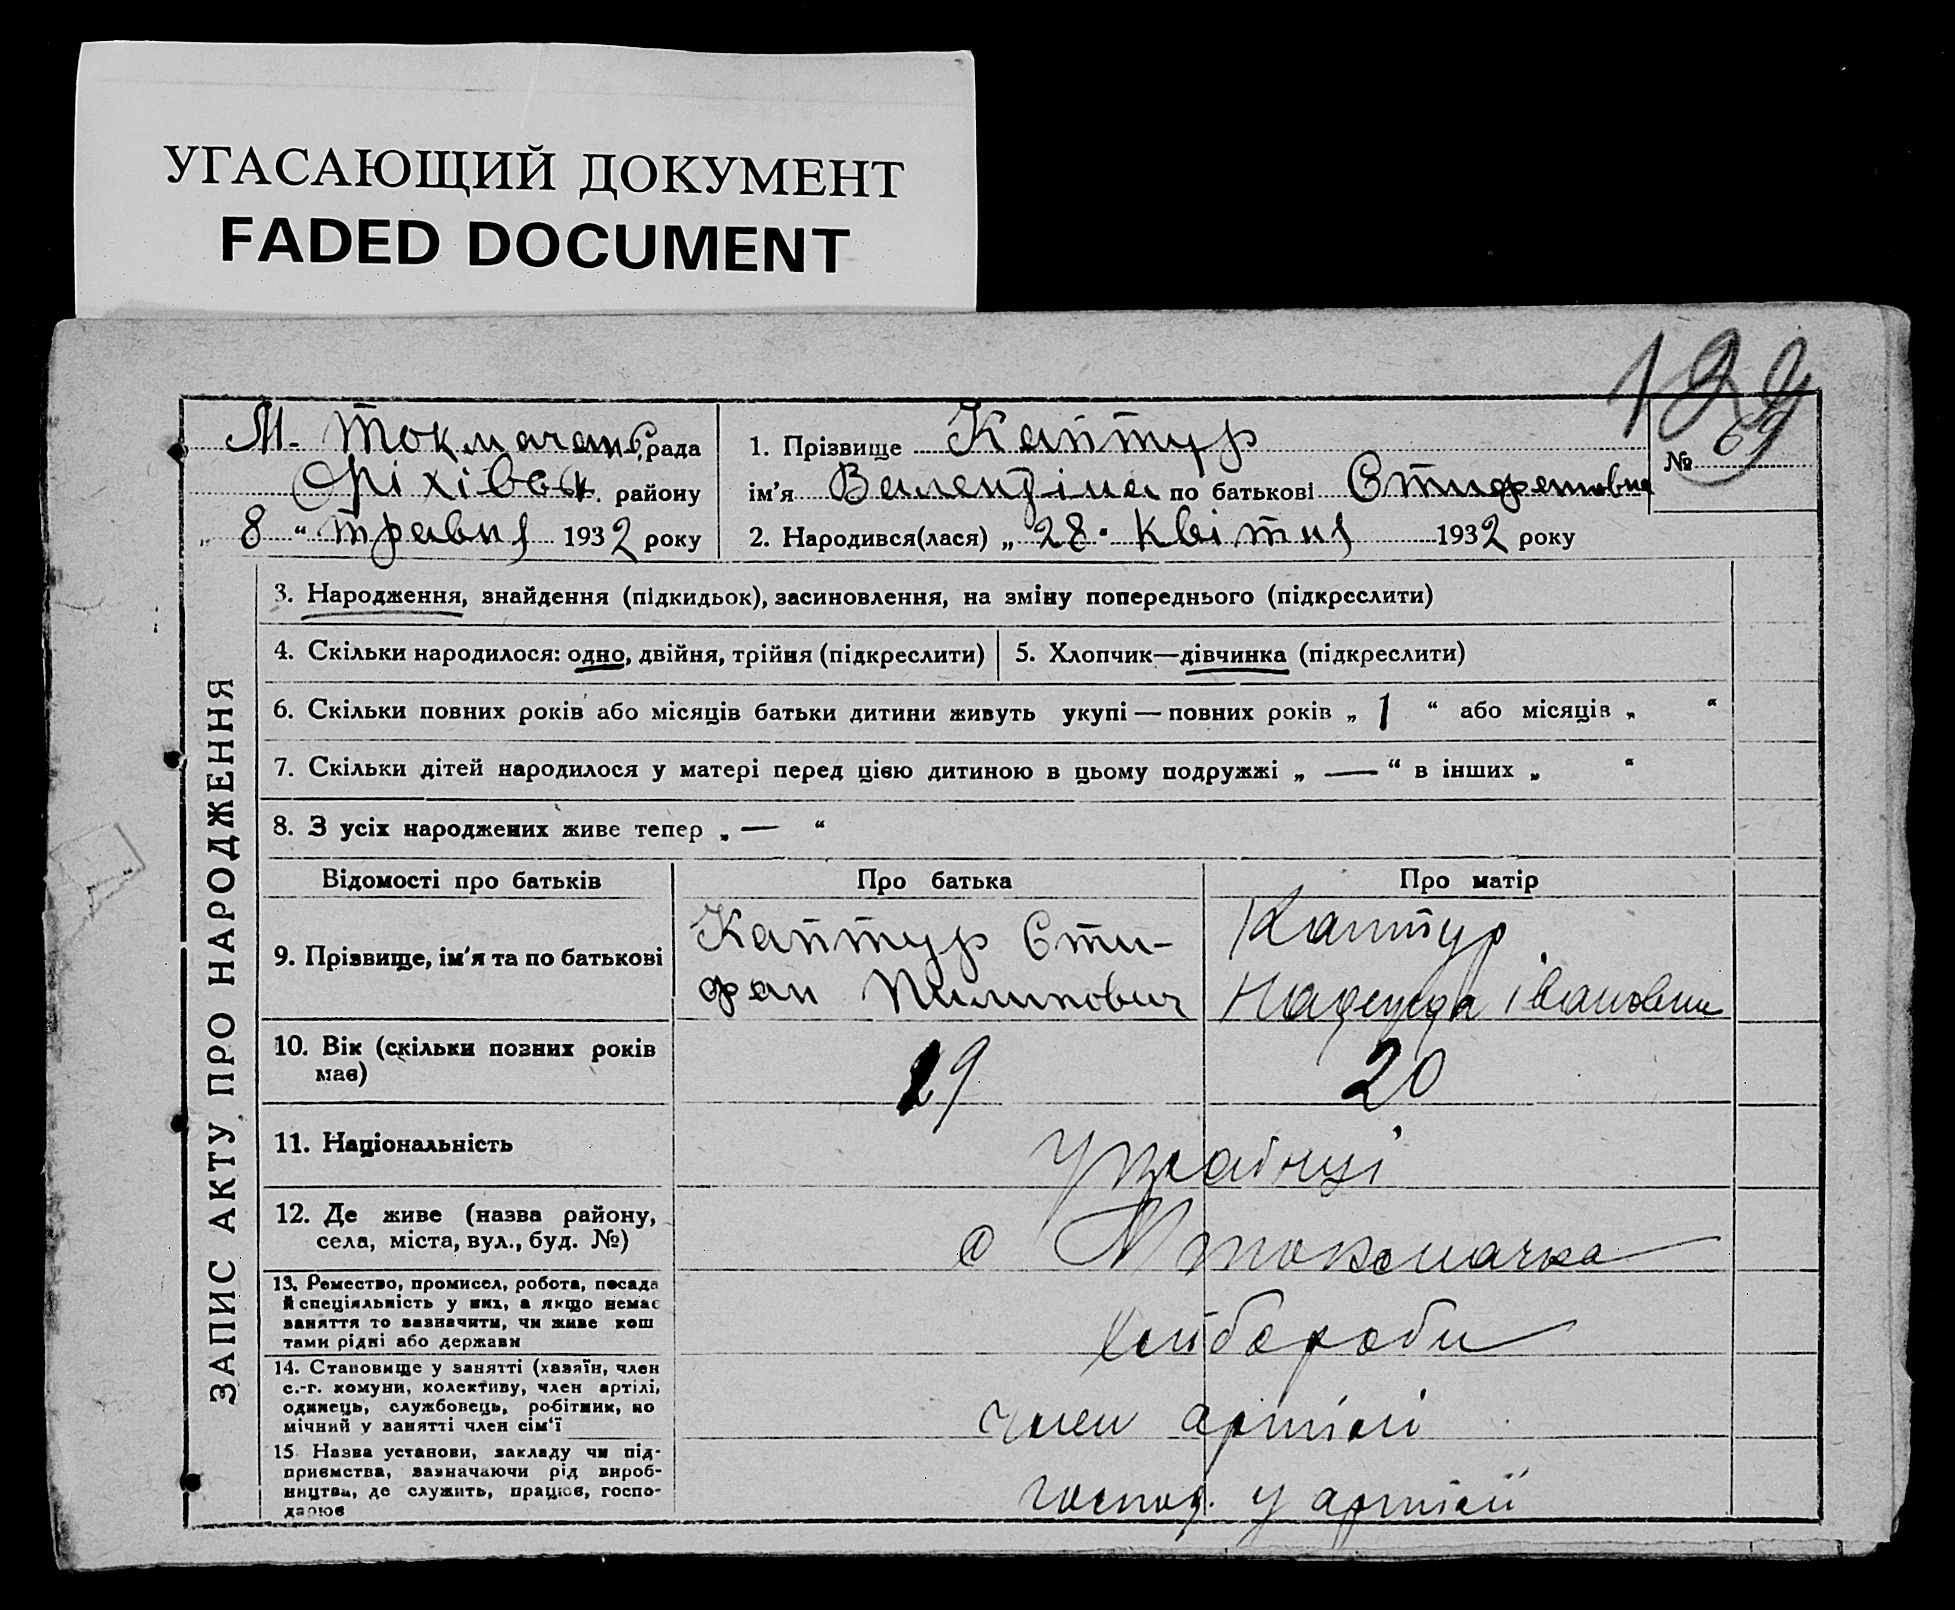 УГАСАЮЩИЙ ДОКУМЕНТ
FADED DOCUMENT
М. Токмачанс. рада
Оріхівськ. району
„ 8 “ травня 1932 року
1. Прізвище Каптур
ім'я Валендіна по батькові
2. Народився(лася) „ 28 " квітня 1932 року
№ 69
ЗАПИС АКТУ ПРО НАРОДЖЕННЯ
3. Народження, знайдення (підкидьок), засиновлення, на зміну попереднього (підкреслити)
4. Скільки народилося: одно, двійня, трійня (підкреслити)
5. Хлопчик—дівчинка (підкреслити)
6. Скільки повних років або місяців батьки дитини живуть укупі — повних років „ 1 “ або місяців „ “
7. Скільки дітей народилося у матері перед цією дитиною в цьому подружжі „ — “ в інших „ “
8. З усіх народжених живе тепер „ — “
Відомості про батьків
Про батька
Про матір
9. Прізвище, ім'я та по батькові
Каптур Сти-
фан Пилипович
Каптур
Надежда Івановна
10. Вік (скільки повних років
має)
29
20
11. Національність
Українці
12. Де живе (назва району,
села, міста, вул., буд. №)
с М Токмачка
13. Ремество, промисел, робота, посада
й спеціяльність у них, а якщо немає
заняття то зазначити, чи живе кош
тами рідні або держави
хлібороби
14. Становище у занятті (хазяїн, член
с.-г. комуни, колективу, член артілі,
одинець, службовець, робітник, по
мічний у занятті член сім'ї
член артілі
15. Назва установи, закладу чи під-
приємства, зазначаючи рід вироб-
ництва, де служить, працює, госпо-
дарює
господ. у артілі